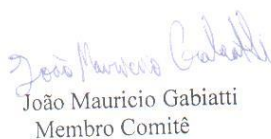 João Mauricio Gabiatti
João Mauricio Gabiatti
Membro Comitê